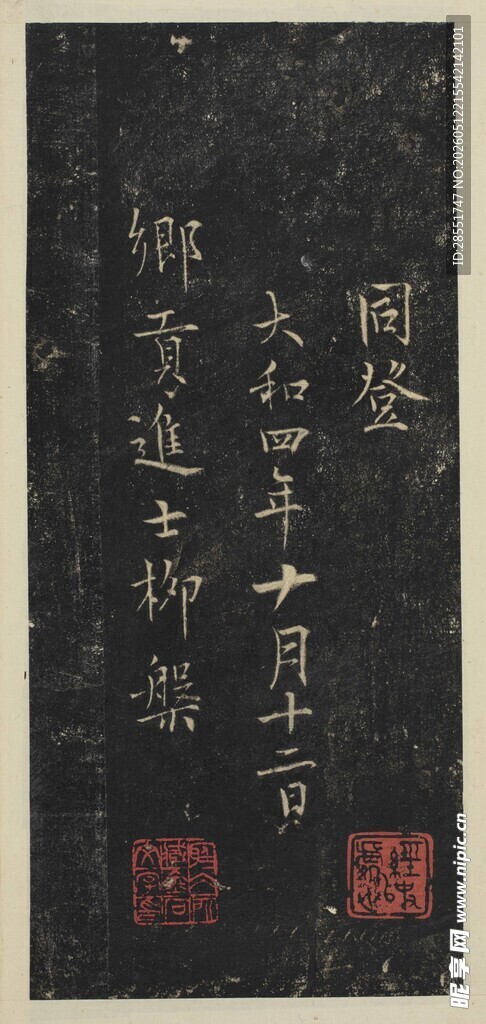 同登
大和四年十月十二日
鄉貢進士柳槃
ID:28551747 NO:20260512215542142101
昵享网 www.nipic.cn